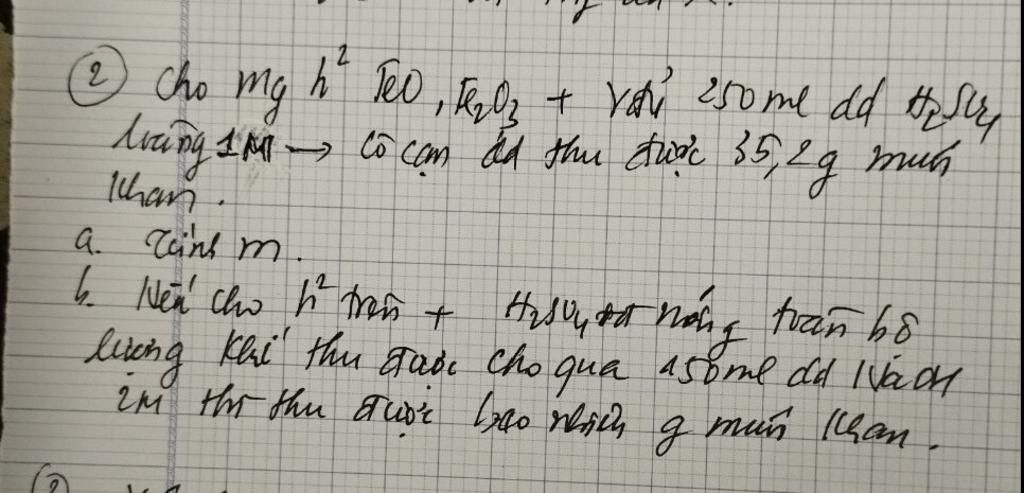 ② Cho mg h² FeO, Fe₂O₃ + vđủ 250 ml dd H₂SO₄
loãng 1M → cô cạn dd thu được 35,2g muối
khan.
a. Tính m.
b. Nếu cho h² trên + H₂SO₄ nóng toàn bộ
lượng khí thu được cho qua 150ml dd NaOH
2M thì thu được bao nhiêu g muối khan.